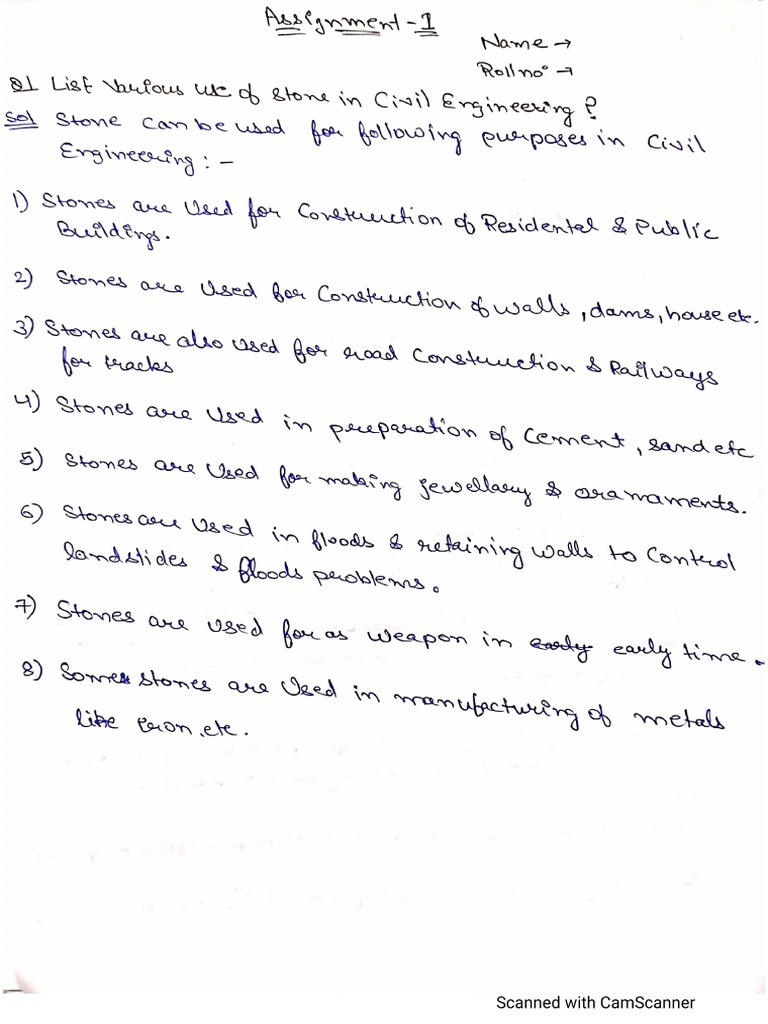 Assignment-1
Name →
Rollno° →
Q1 List Various use of Stone in Civil Engineering ?
Sol Stone can be used for following purposes in Civil
Engineering : -
1) Stones are Used for Construction of Residental & Public
Buildings.
2) Stones are Used for Construction of walls, dams, house etc.
3) Stones are also used for road Construction & Railways
for tracks
4) Stones are Used in preparation of Cement, sand etc
5) Stones are Used for making jewellary & oramaments.
6) Stones are Used in floods & retaining walls to Control
landslides & floods problems.
7) Stones are used for as weapon in early early time.
8) Some stones are Used in manufacturing of metals
like iron.etc.
Scanned with CamScanner